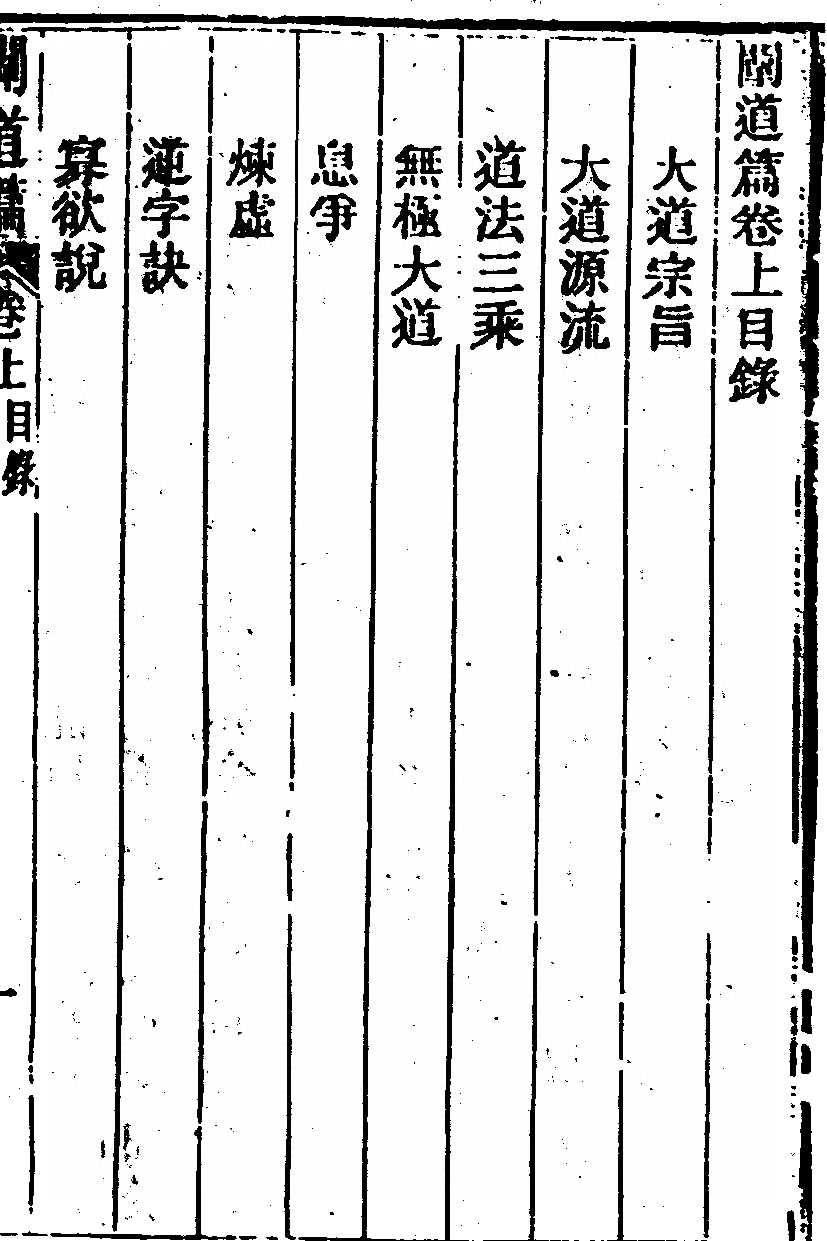 闡道篇卷上目錄
大道宗旨
大道源流
道法三乘
無極大道
息爭
煉虛
逆字訣
寡欲說
闡道篇卷上目錄
一